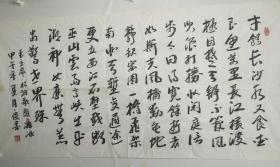 才饮长沙水又食
武昌鱼万里长江横渡
极目楚天舒不管风
吹浪打胜似闲庭信
步今日得宽馀逝者
如斯夫风樯动龟蛇
静起宏图一桥飞架
南北天堑变通途
更立西江石壁截断
巫山云雨高峡出平
湖神女应无恙
当惊世界殊
毛主席水调歌头游泳
甲午年夏月